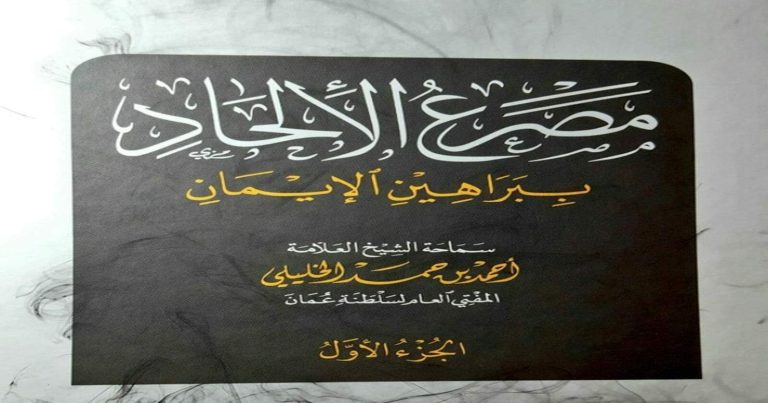 مَصْرَعُ الْأَلْحَادِ
بِبَرَاهِيْنِ الْإِيْمَانِ
سَمَاحَة الشَّيْخ العَلَّامَة
أحمد بن حمد الخليلي
المُفْتِي العَام لِسَلْطَنَةِ عُمَانَ
الجُزْءُ الأَوَّلُ